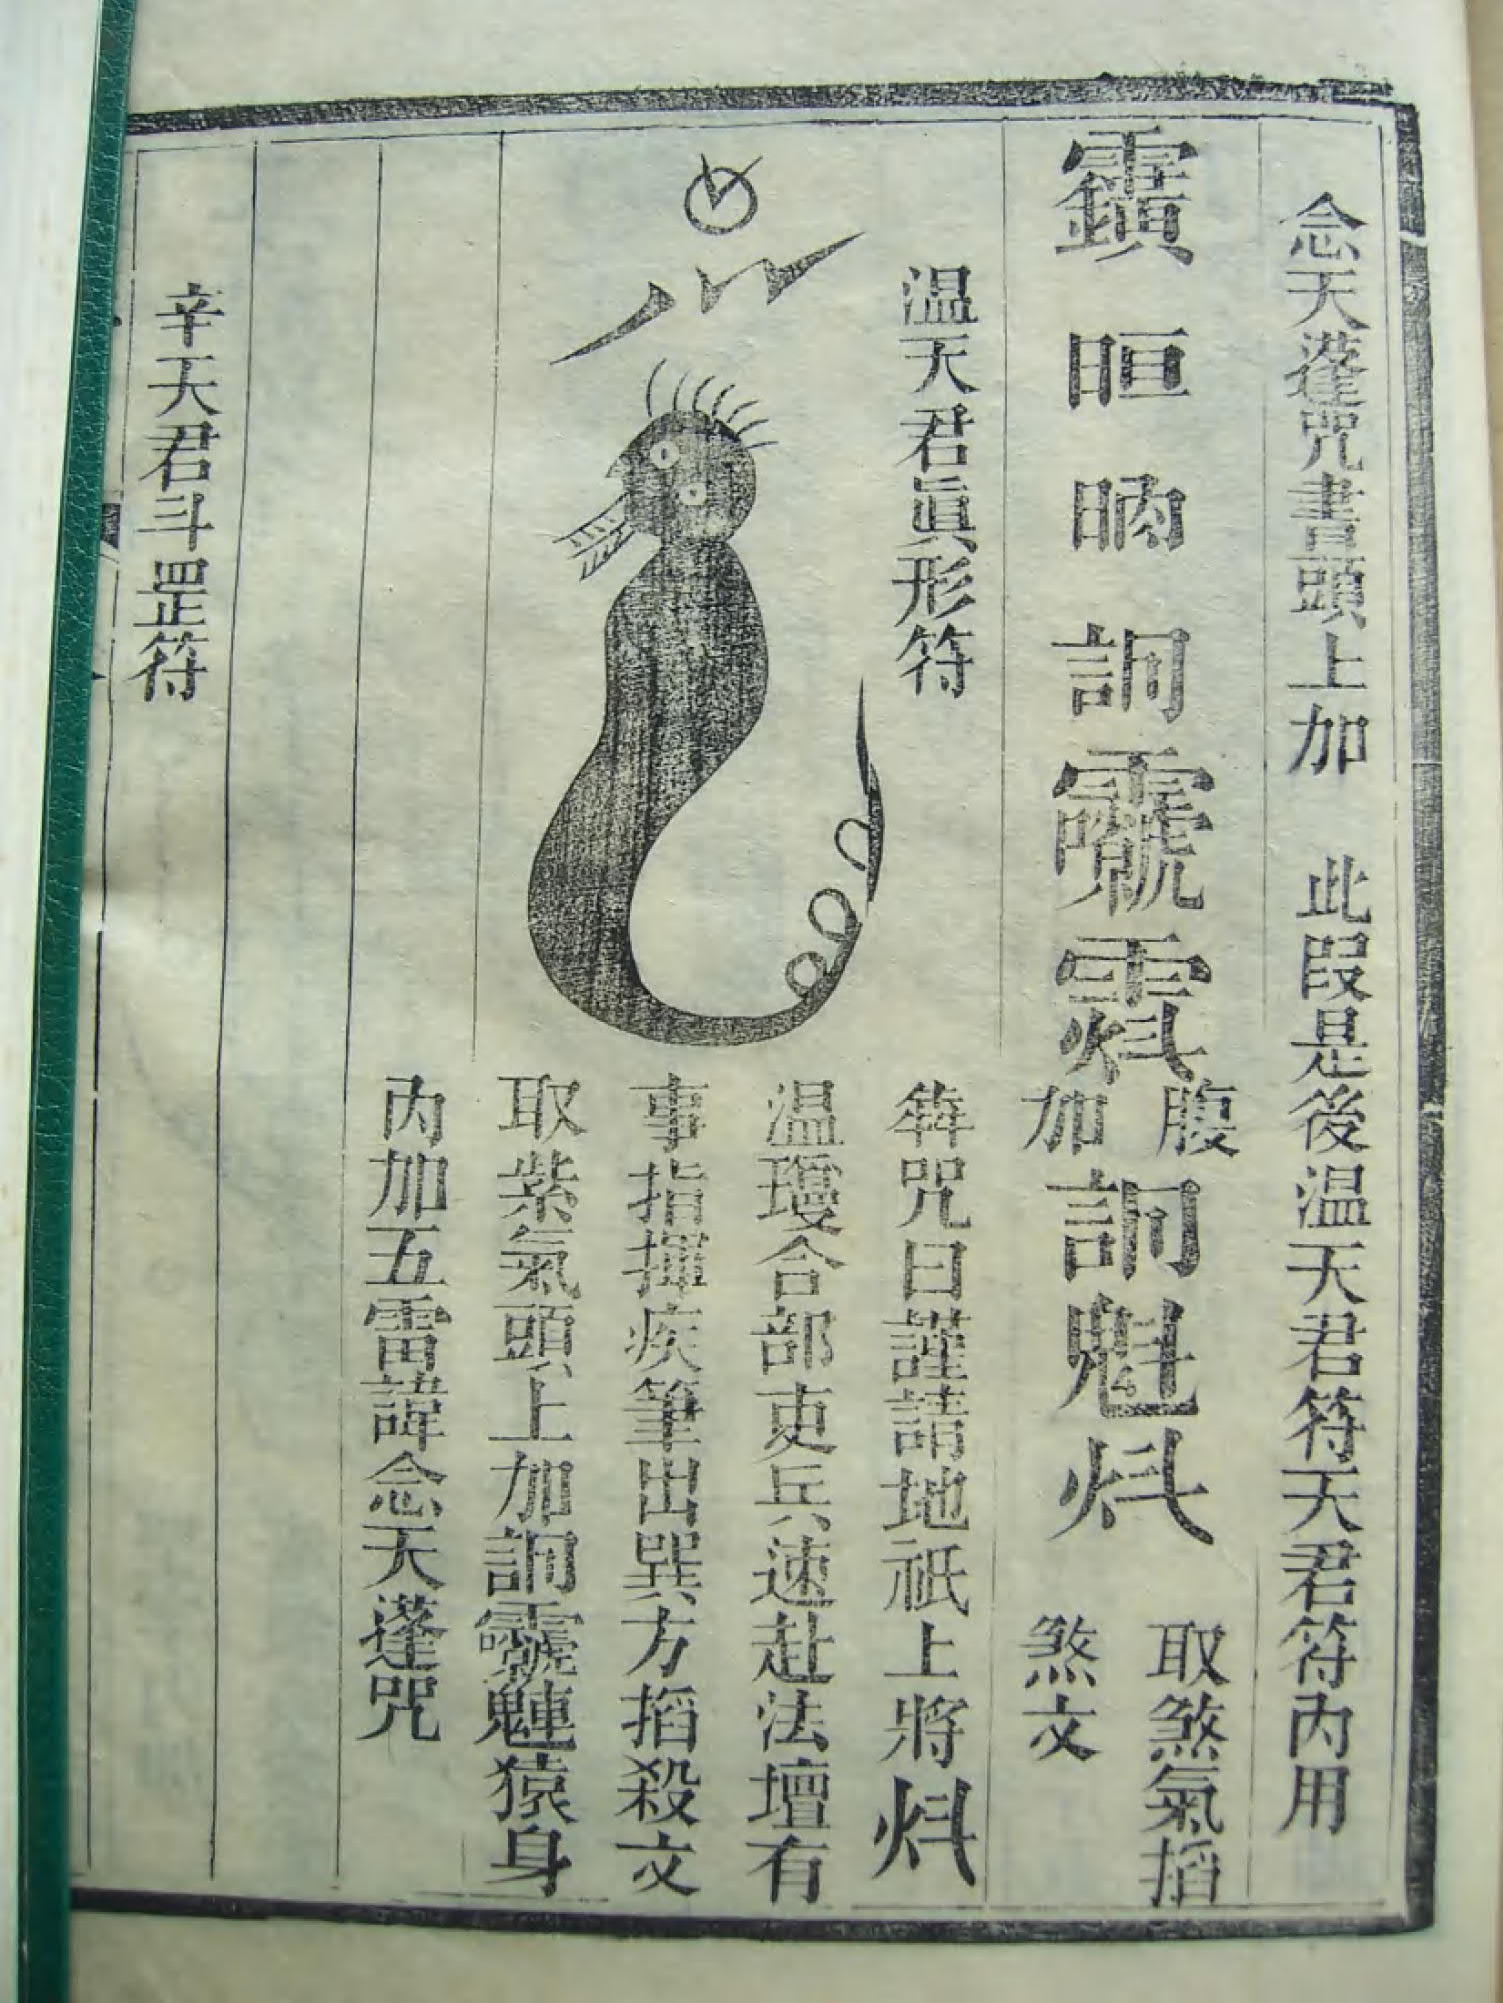 念天蓬咒書頭上加 此段是後温天君符天君符内用
晅昞訶 腹
加
訶魁
取煞氣搯
煞文
温天君眞形符
咒曰謹請地祇上將
温瓊合部吏兵速赴法壇有
事指揮疾筆出巽方搯殺文
取紫氣頭上加訶 猿身
内加五雷諱念天蓬咒
辛天君斗罡符